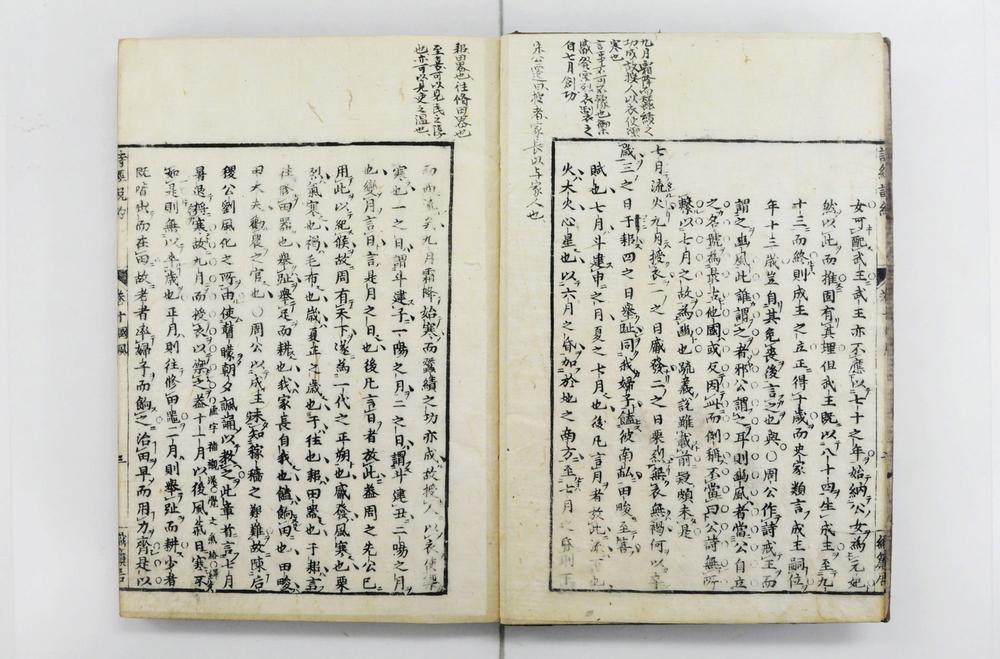 九月霜降而蠶績之
功成故授人以衣使禦
寒也
自七月創功
朱公遷曰授者家長以与家人也
女可配武王武王亦不應以七十之年始納公女為元妃
然以此而推固有其理但武王既以八十四生成王至九
十三而終則成王之立正得十歲而史家類言成王嗣位
年十三歲豈自其免喪後言之也與○周公作詩戒王而
謂之豳風此誰謂之者邪公謂之耳則豳風者當公自立
之名號為最古他國或反因此而倒稱不當曰公詩無所
繫以七月之故為豳也疏義說雖載前段頗未是
七月流火九月授衣一之日觱發二之日栗烈無衣無褐何以卒
歲三之日于耜四之日舉趾同我婦子饁彼南畝田畯至喜
賦也七月斗建申之月夏之七月也後凡言月者放此流下也
火大火心星也以六月之昏加於地之南方至七月之昏則下
耜田器也往脩田器也
至喜可以見民之
也亦可以見吏之溫也
而西流矣九月霜降始寒而蠶績之功亦成故授人以衣使禦
寒也一之日謂斗建子一陽之月二之日謂斗建丑二陽之月
也變月言日言是月之日也後凡言日者放此蓋周之先公已
用此以紀候故周有天下遂為一代之正朔也觱發風寒也栗
烈氣寒也褐毛布也歲夏正之歲也于往也耜田器也于耜言
往脩田器也舉趾舉足而耕也我家長自我也饁餉田也田畯
田大夫勸農之官也○周公以成王未知稼穡之艱難故陳后
稷公劉風化之所由使瞽矇朝夕諷誦以教之此章首言七月
暑退將寒故九月而授衣以禦之蓋十一月以後風氣日寒不
如是則無以卒歲也正月則往修田器二月則舉趾而耕少者
既皆出而在田故老者率婦子而餉之治田早而用力齊是以
詩經說約
卷十國風
三